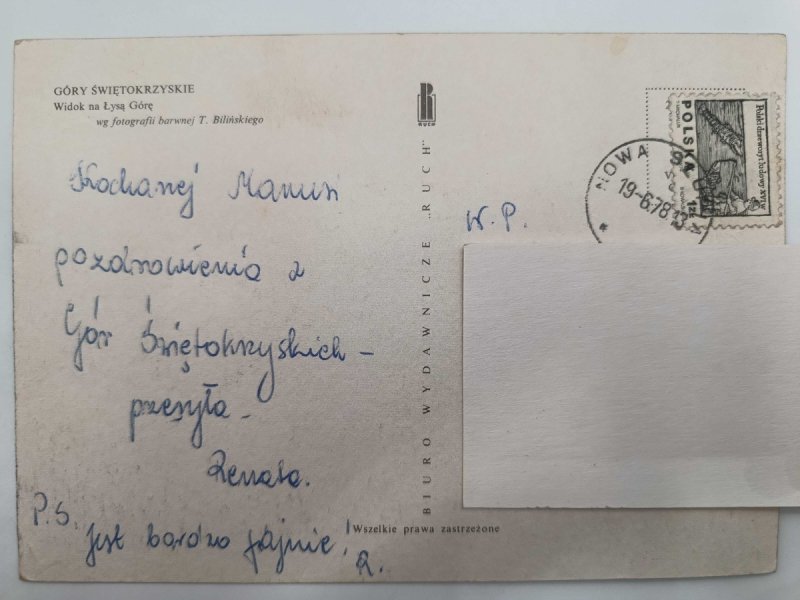 GÓRY ŚWIĘTOKRZYSKIE
Widok na Łysą Górę
wg fotografii barwnej T. Bilińskiego
Kochanej Mamusi
pozdrowienia z
Gór Świętokrzyskich –
przesyła –
Renata.
P.S.
Jest bardzo fajnie!
R.
BIURO WYDAWNICZE „RUCH”
RUCH
Wszelkie prawa zastrzeżone
W.P.
NOWA
19-6.78
POLSKA
Polski drzeworyt ludowy XVI w.